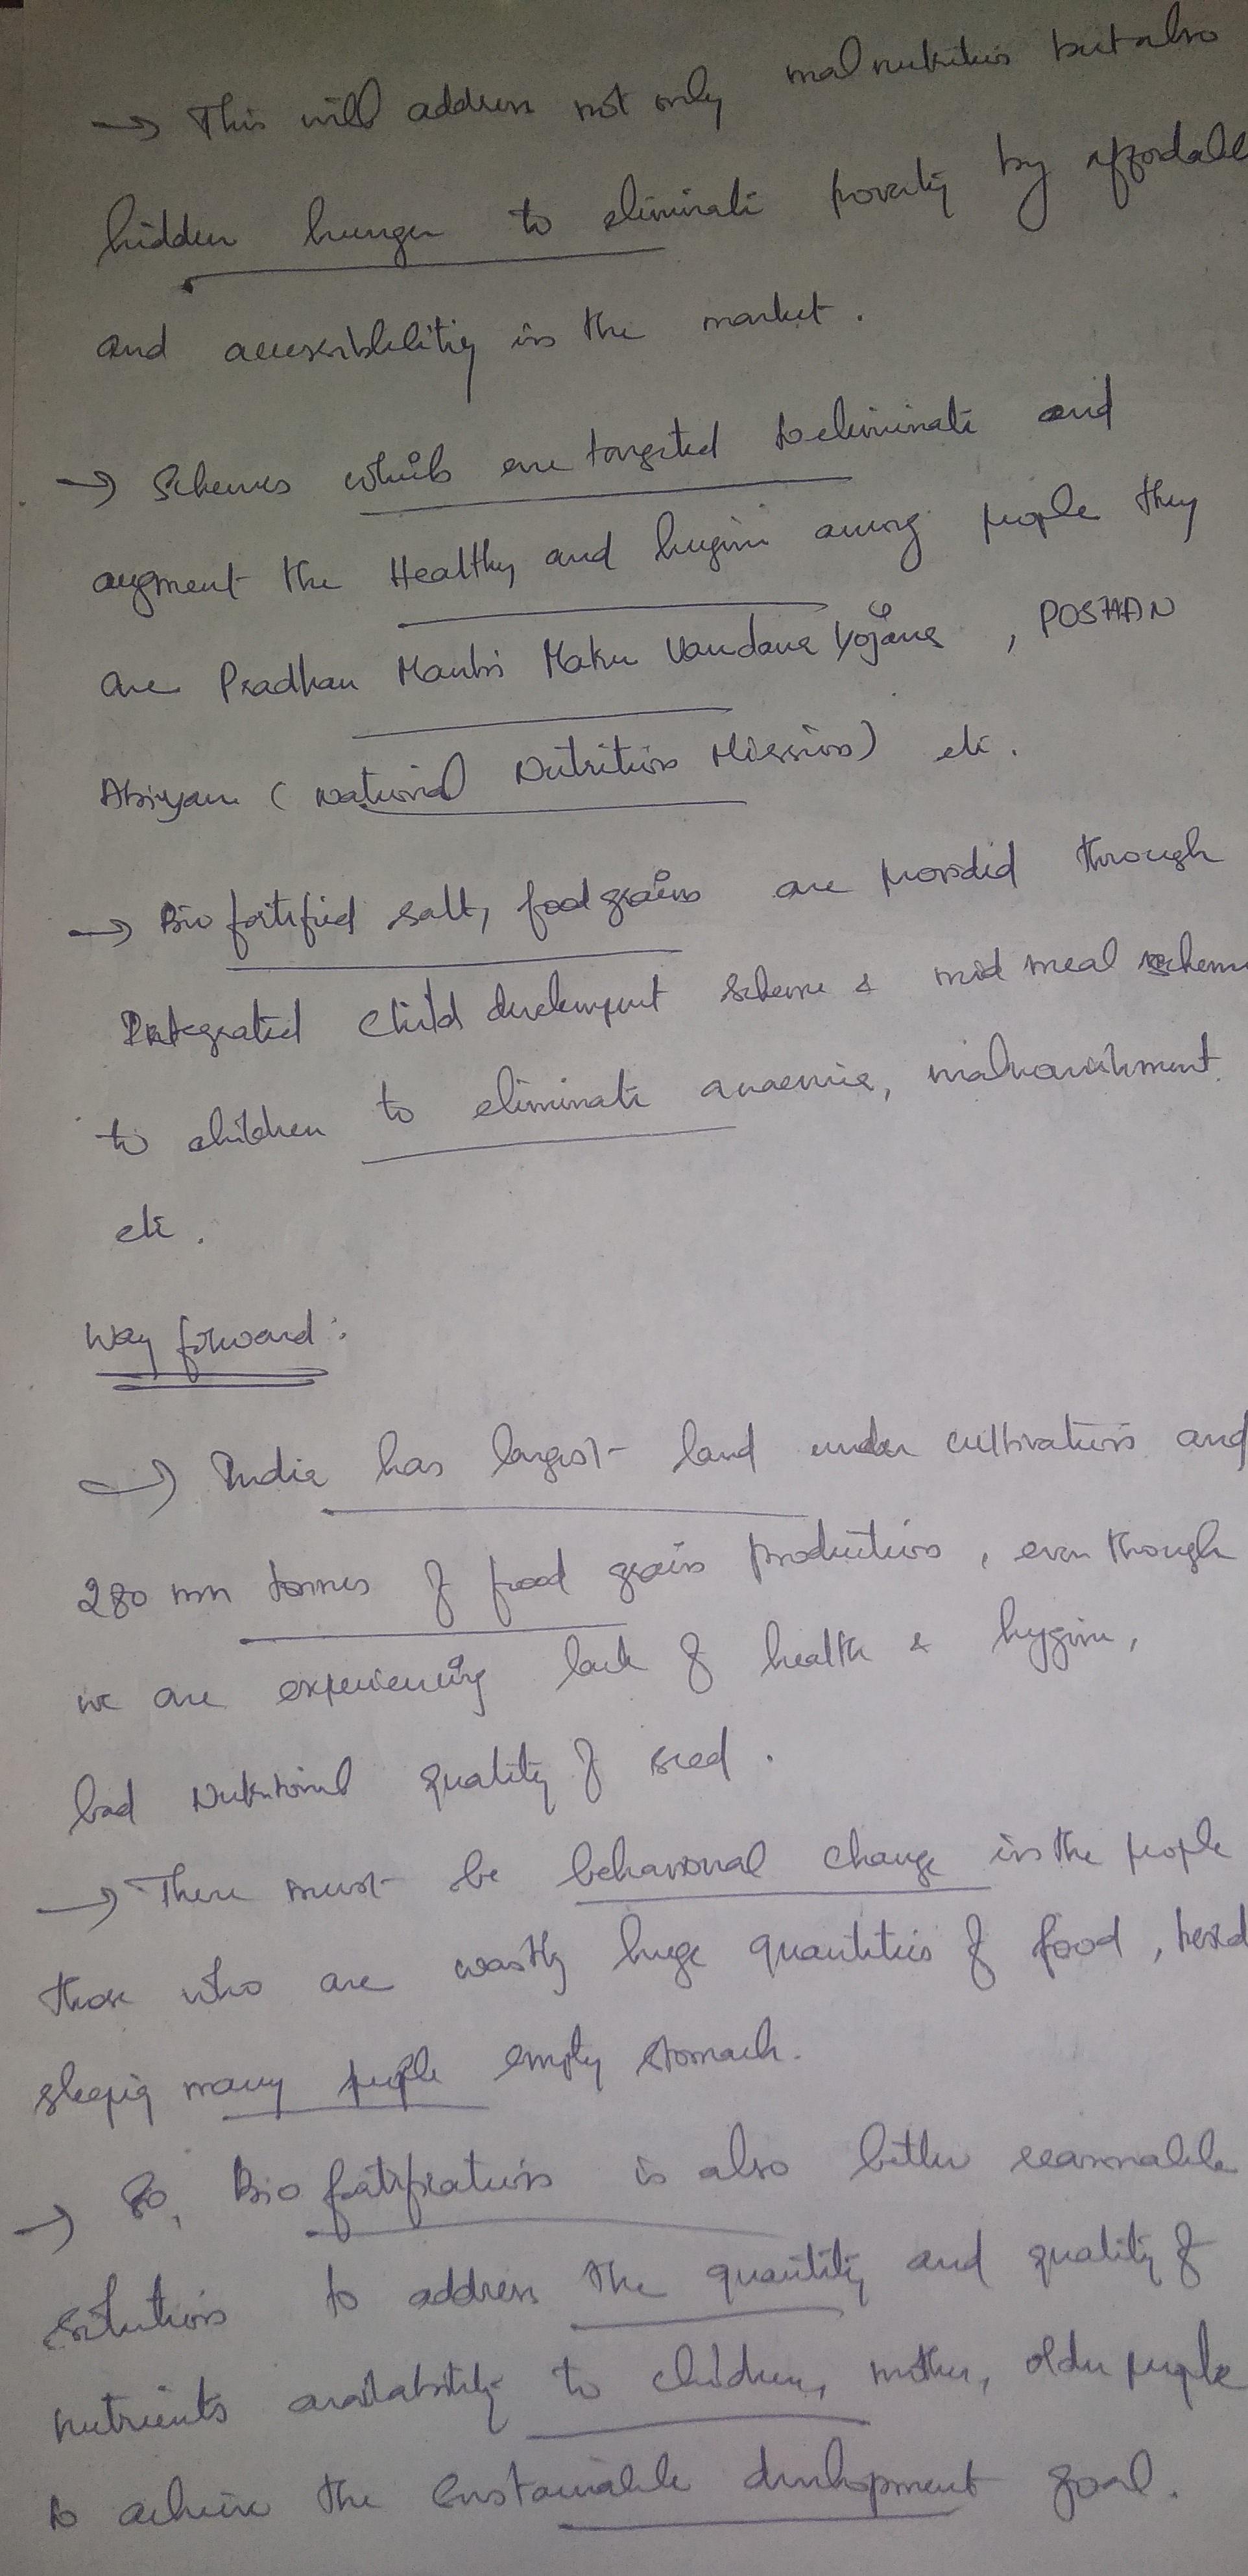 → This will address not only malnutrition but also
hidden hunger to eliminate poverty by affordable
and accessiblility in the market.
→ Schemes which are targeted to eliminate and
augment the Healthy and hygine among people they
are Pradhan Mantri Matru Vandana Yojana, POSHAN
Abhiyan (National Nutrition Mission) etc.
→ Bio fortified salt, food grains are provided through
Integrated Child development scheme & mid meal scheme
to children to eliminate anaemia, malnourishment
etc.
Way forward:
→ India has largest land under cultivation and
280 mn tonnes of food grain production, even though
we are experiencing lack of health & hygine,
bad Nutritional quality of seed.
→ There must be behavioral change in the people
those who are wasting huge quantities of food,
sleeping many people empty stomach.
→ So, Bio fortification is also better reasonable
solution to address the quantity and quality of
nutrients availability to children, mother, older people
to achieve the Sustainable development goal.